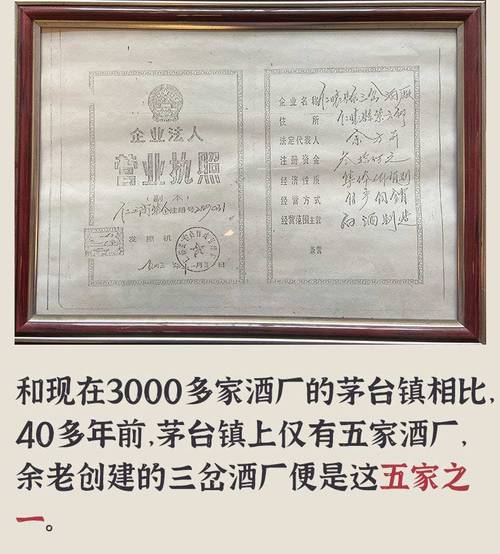 企业法人
营业执照
(副本)
发照机
企业名称 仁怀县三岔酒厂
住所
法定代表人 余方开
注册资金
经济性质
经营方式
经营范围主营 白酒制造
兼营
和现在3000多家酒厂的茅台镇相比,
40多年前,茅台镇上仅有五家酒厂,
余老创建的三岔酒厂便是这五家之
一。